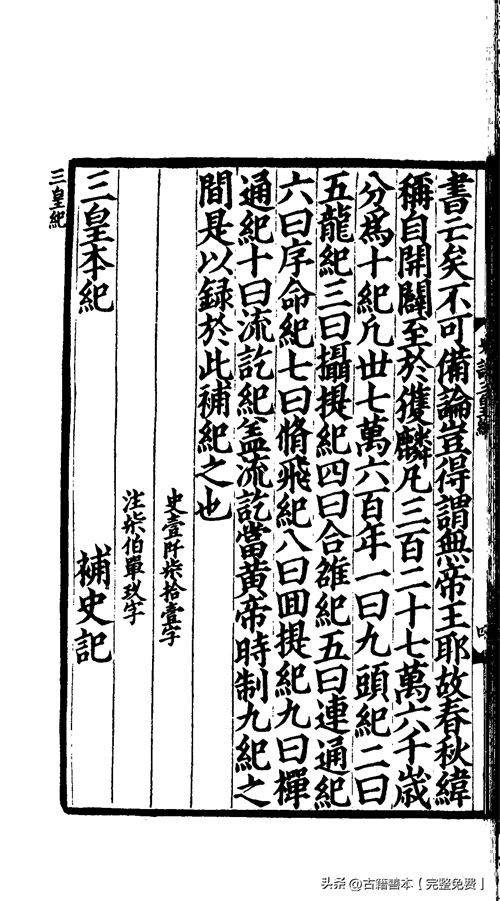 書亡矣不可備論豈得謂無帝王耶故春秋緯
稱自開闢至於獲麟凡三百二十七萬六千歲
分爲十紀凡世七萬六百年一曰九頭紀二曰
五龍紀三曰攝提紀四曰合雒紀五曰連通紀
六曰序命紀七曰脩飛紀八曰囬提紀九曰禪
通紀十曰流訖紀盖流訖當黃帝時制九紀之
間是以録於此補紀之也
史壹阡柒拾壹字
注柒伯單玖字
三皇本紀 補史記
三皇紀
头条 @古籍善本【完整免费】